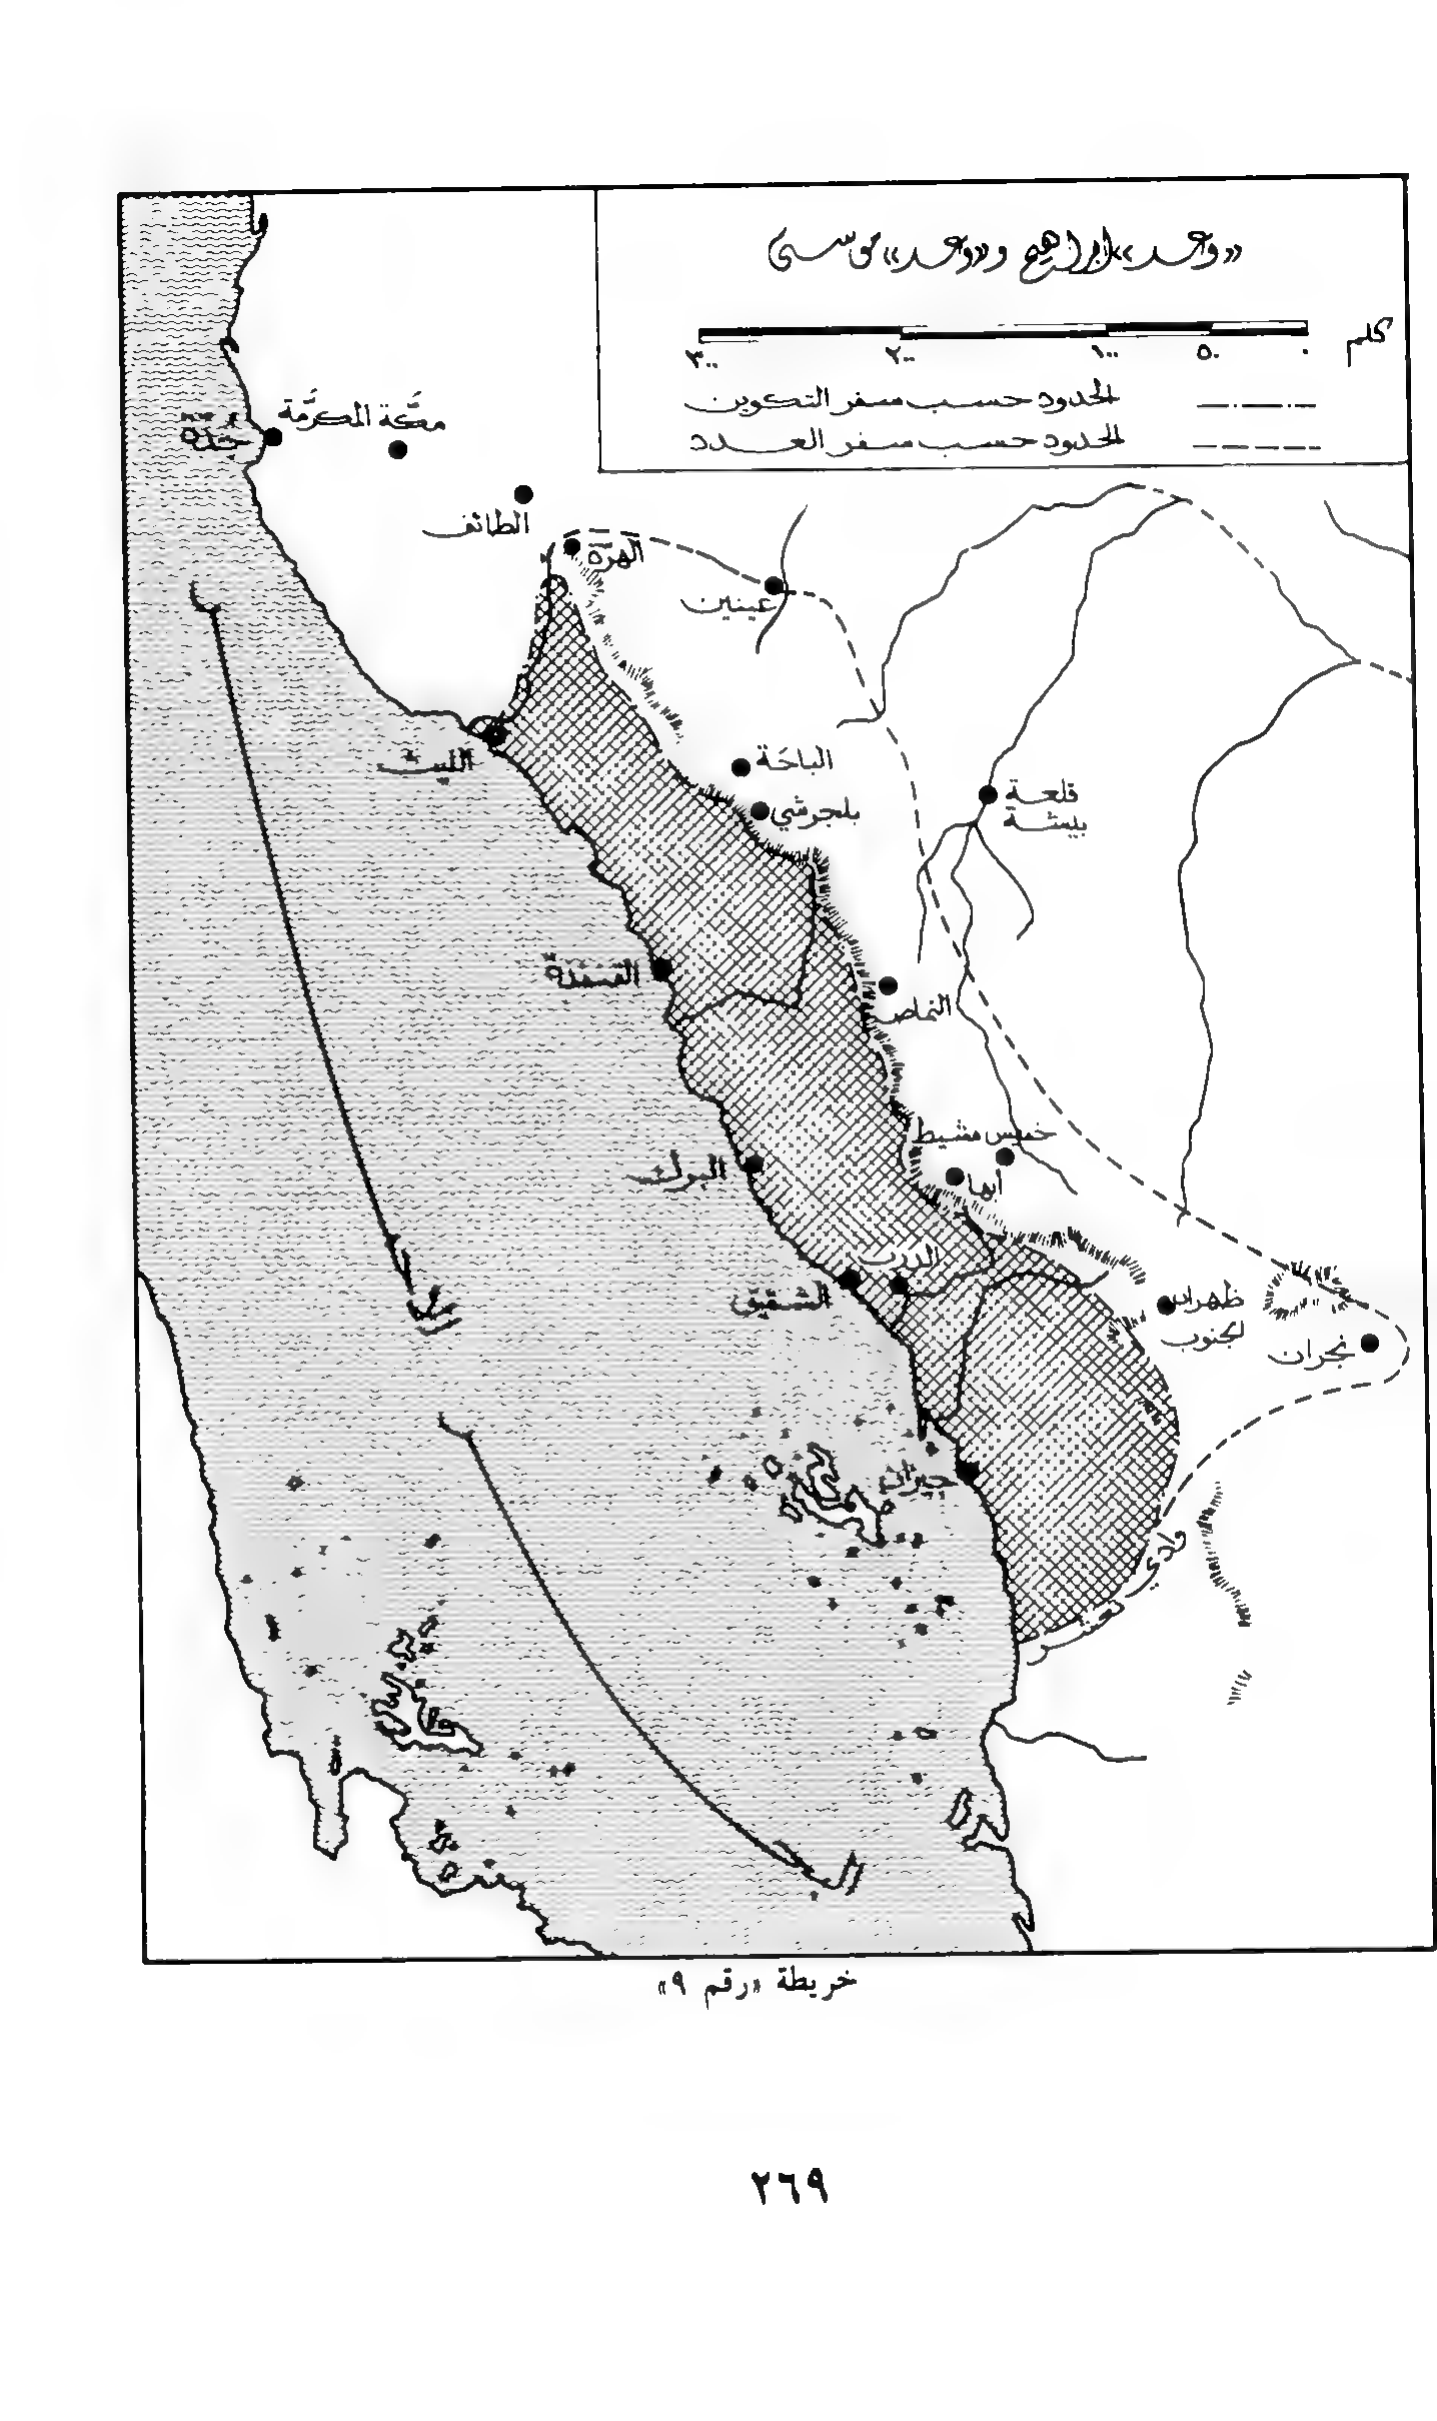 «وعد» ابراهيم و«وعد» موسى
كلم
٣٠٠ ٢٠٠ ١٠٠ ٥٠ ٠
الحدود حسب سفر التكوين
الحدود حسب سفر العدد
مكَّة المكرَّمة
جُدّة
الطائف
الهدّة
عينين
الليث
الباحَة
بلجرشي
قلعة
بيشة
القنفذة
النماص
خميس مشيط
أبها
البرك
الدرب
الشقيق
ظهران
الجنوب
نجران
جيزان
وادي
خريطة «رقم ٩»
٢٦٩